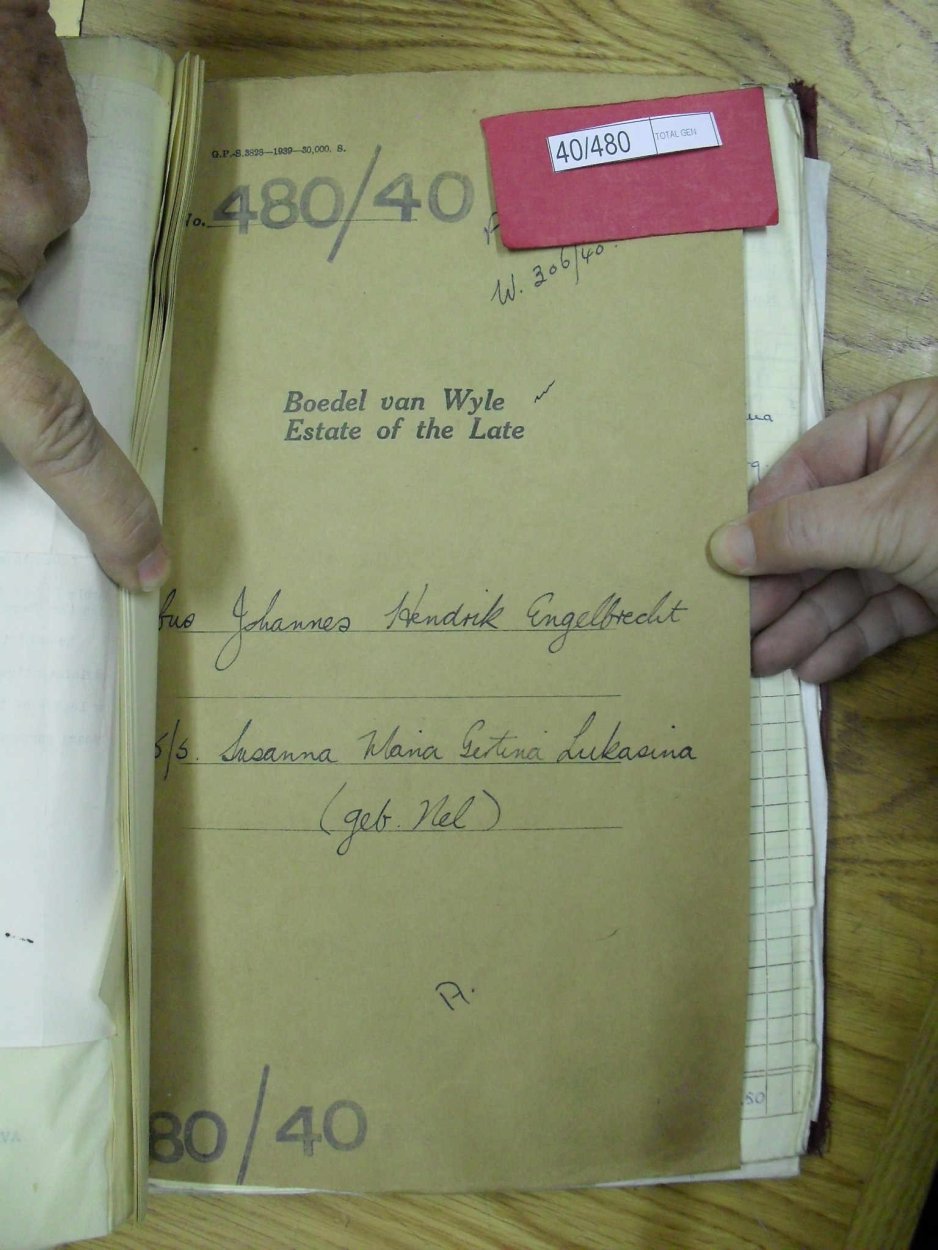 40/480 TOTAL GEN
G.P.-S.3828—1939—30,000. S.
No. 480/40
W. 306/40.
Boedel van Wyle
Estate of the Late
bus Johannes Hendrik Engelbrecht
s/s. Susanna Maria Gertina Lukasina
(geb. Nel)
A.
80/40